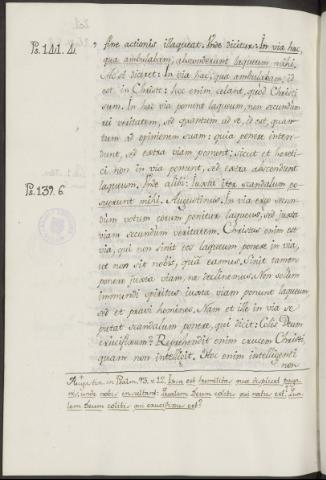 Ps. 141. 4.
sine actionis illaqueat. Unde dicitur: In via hac,
qua ambulabam, absconderunt laqueum mihi.
Ac si diceret: In via hac, qua ambulabam, id
est, in Christo: hoc enim celant, quod Christi
sum. In hac via ponunt laqueum, non secundum
rei veritatem, sed quantum ad se, id est, quan-
tum ad opinionem suam: quia ponere inten-
dunt, sed extra viam ponunt; sicut et hereti-
ci non in via ponunt, sed extra absconderunt
laqueum. Unde alibi: Iuxta iter scandalum po-
Ps. 139. 6.
suerunt mihi. Augustinus. In via ergo secun-
dum votum eorum ponitur laqueus, sed juxta
viam secundum veritatem. Christus enim est
via, qui non sinit eos laqueum ponere in via,
ut non sit nobis, quâ eamus. Sinit tamen
ponere juxta viam, ne declinemus. Non solum
immundi spiritus juxta viam ponunt laqueum
sed et pravi homines. Nam et ille in via se
putat scandalum ponere, qui dicit: Colis Deum
crucifixum? Reprehendit enim crucem Christi,
quam non intelligit. Hoc enim intelligenti
non
August. in Psalm. 93. v. 12. Ipsa est humilitas quae displicet paga-
nis; unde nobis insultant: Qualem Deum colitis qui natus est? Qua-
lem Deum colitis qui crucifixus est?